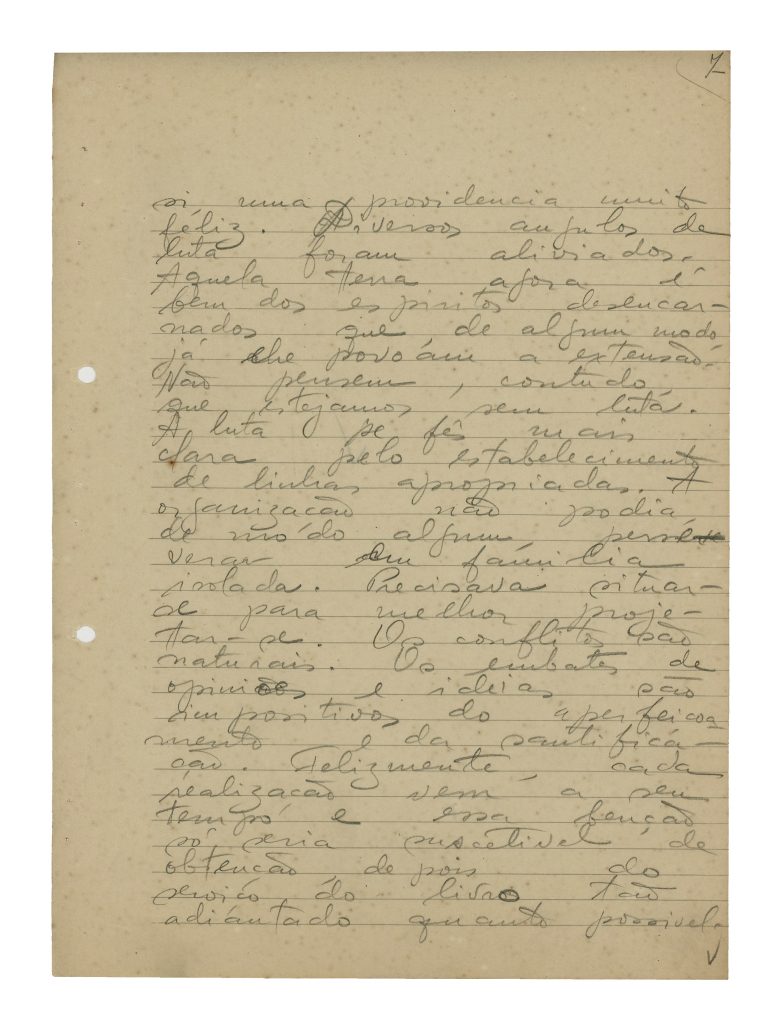 7
si uma providencia muito
féliz. Diversos angulos de
luta foram aliviados.
Aquela terra agora é
bem dos espiritos desencar-
nados que de algum modo
já lhe povoam a extensão.
Não pensem, contudo,
que estejamos sem luta.
A luta se fês mais
clara pelo estabelecimento
de linhas apropriadas. A
organização não podia,
de modo algum, perse
verar em familia
isolada. Precisava situar-
se para melhor proje-
tar-se. Os conflitos são
naturais. Os embates de
opiniões e ideias são
impositivos do aperfeiçoa
mento e da santifica-
ção. Felizmente, cada
realização vem a seu
tempo e essa benção
só seria suscetivel de
obtenção depois do
serviço do livro tão
adiantado quanto possivel.